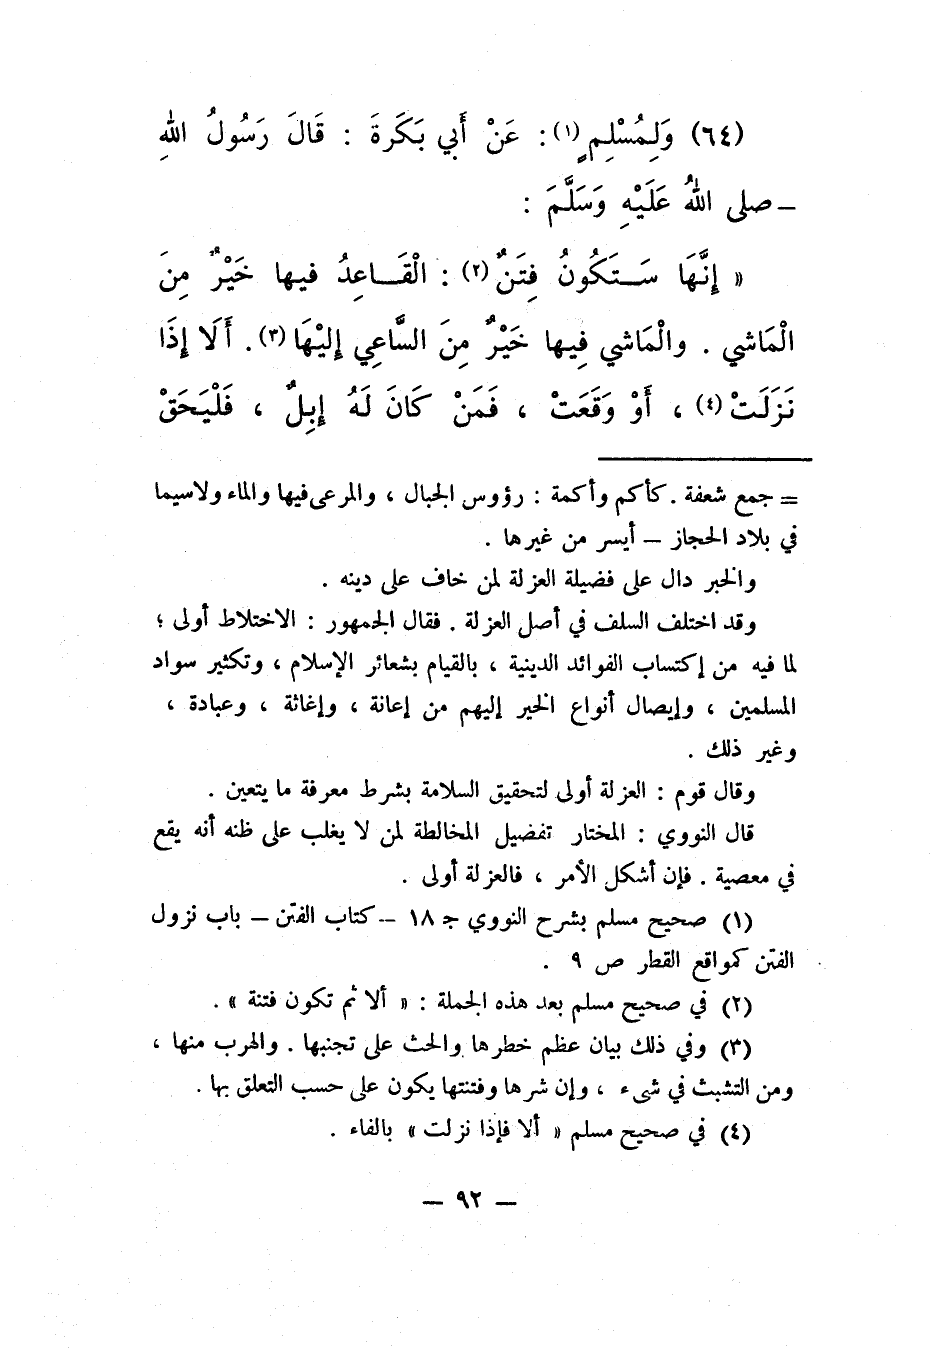 (٦٤) وَلِمُسْلِمٍ(١): عَنْ أَبي بَكَرةَ : قَالَ رَسُولُ اللهِ
ــ صلى اللهُ عَلَيْهِ وَسَلَّمَ :
« إِنَّهَا سَــتكُونُ فِتَنٌ(٢) : الْقَــاعِدُ فيها خَيْرٌ مِنَ
الْمَاشي . والْمَاشي فِيها خَيْرٌ مِنَ السَّاعِي إِليْهَا(٣). أَلَا إِذَا
نَزَلَتْ(٤) ، أَوْ وَقَعَتْ ، فَمَنْ كَانَ لَهُ إِبِلٌ ، فَلْيَحَقْ
= جمع شعفة . كأكم وأكمة : رؤوس الجبال ، والمرعى فيها والماء ولاسيما
في بلاد الحجاز ــ أيسر من غيرها .
والخبر دال على فضيلة العزلة لمن خاف على دينه .
وقد اختلف السلف في أصل العزلة . فقال الجمهور : الاختلاط أولى ؛
لما فيه من إكتساب الفوائد الدينية ، بالقيام بشعائر الإسلام ، وتكثير سواد
المسلمين ، وإيصال أنواع الخير إليهم من إعانة ، وإغاثة ، وعبادة ،
وغير ذلك .
وقال قوم : العزلة أولى لتحقيق السلامة بشرط معرفة ما يتعين .
قال النووي : المختار تفضيل المخالطة لمن لا يغلب على ظنه أنه يقع
في معصية . فإن أشكل الأمر ، فالعزلة أولى .
(١) صحيح مسلم بشرح النووي جـ ١٨ ــ كتاب الفتن ــ باب نزول
الفتن كمواقع القطر ص ٩ .
(٢) في صحيح مسلم بعد هذه الجملة : « ألا ثم تكون فتنة » .
(٣) وفي ذلك بيان عظم خطرها والحث على تجنبها . والهرب منها ،
ومن التشبث في شىء ، وإن شرها وفتنتها يكون على حسب التعلق بها .
(٤) في صحيح مسلم « ألا فإذا نزلت » بالفاء .
ــ ٩٢ ــ